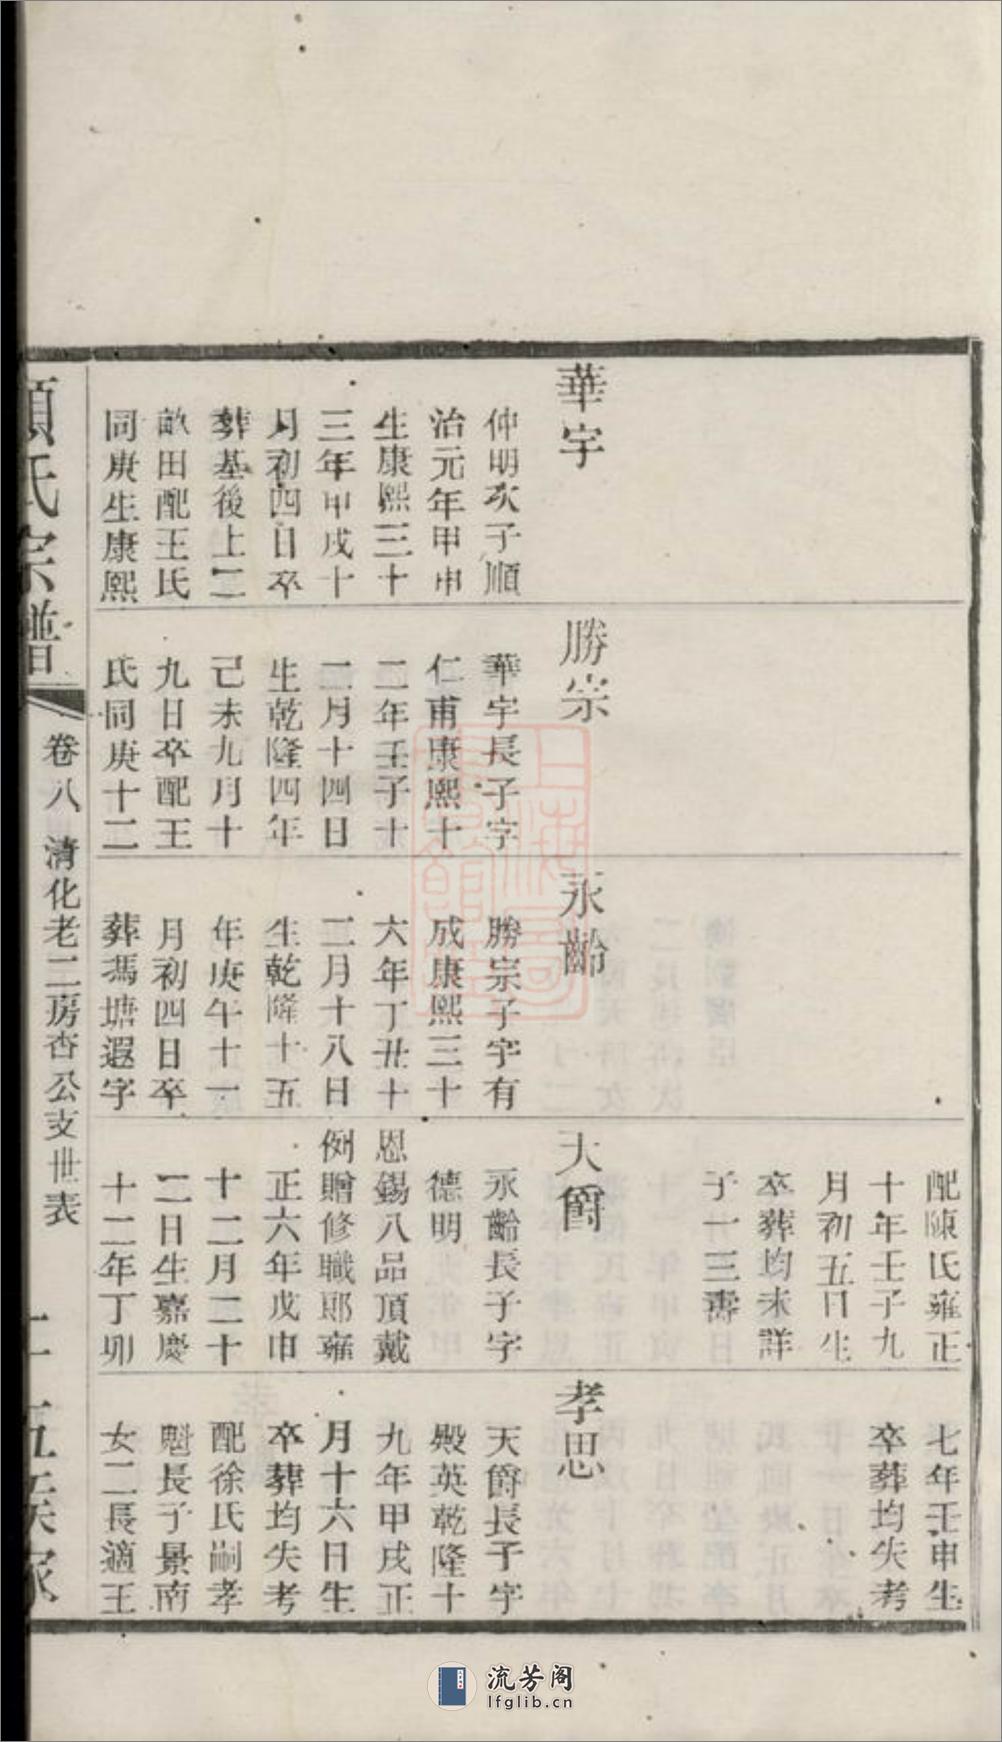 華宇
仲明次子順
治元年甲申
生康熙三十
三年甲戌十
月初四日卒
葬基後上二
畝田配王氏
同庚生康熙
勝宗
華宇長子字
仁甫康熙十
二年壬子十
二月十四日
生乾隆四年
己未九月十
九日卒配王
氏同庚十二
永齡
勝宗子字有
成康熙三十
六年丁丑十
二月十八日
生乾隆十五
年庚午十一
月初四日卒
葬馮塘遐字
配陳氏雍正
十年壬子九
月初五日生
卒葬均未詳
子一三壽
天爵
永齡長子字
德明
恩錫八品頂戴
例贈修職郎雍
正六年戊申
十二月二十
二日生嘉慶
十二年丁卯
七年壬申生
卒葬均失考
孝思
天爵長子字
殿英乾隆十
九年甲戌正
月十六日生
卒葬均失考
配徐氏嗣孝
魁長子景南
女二長適王
氏宗譜
卷八 清化老二房杏公支世表
流芳阁
lfglib.cn